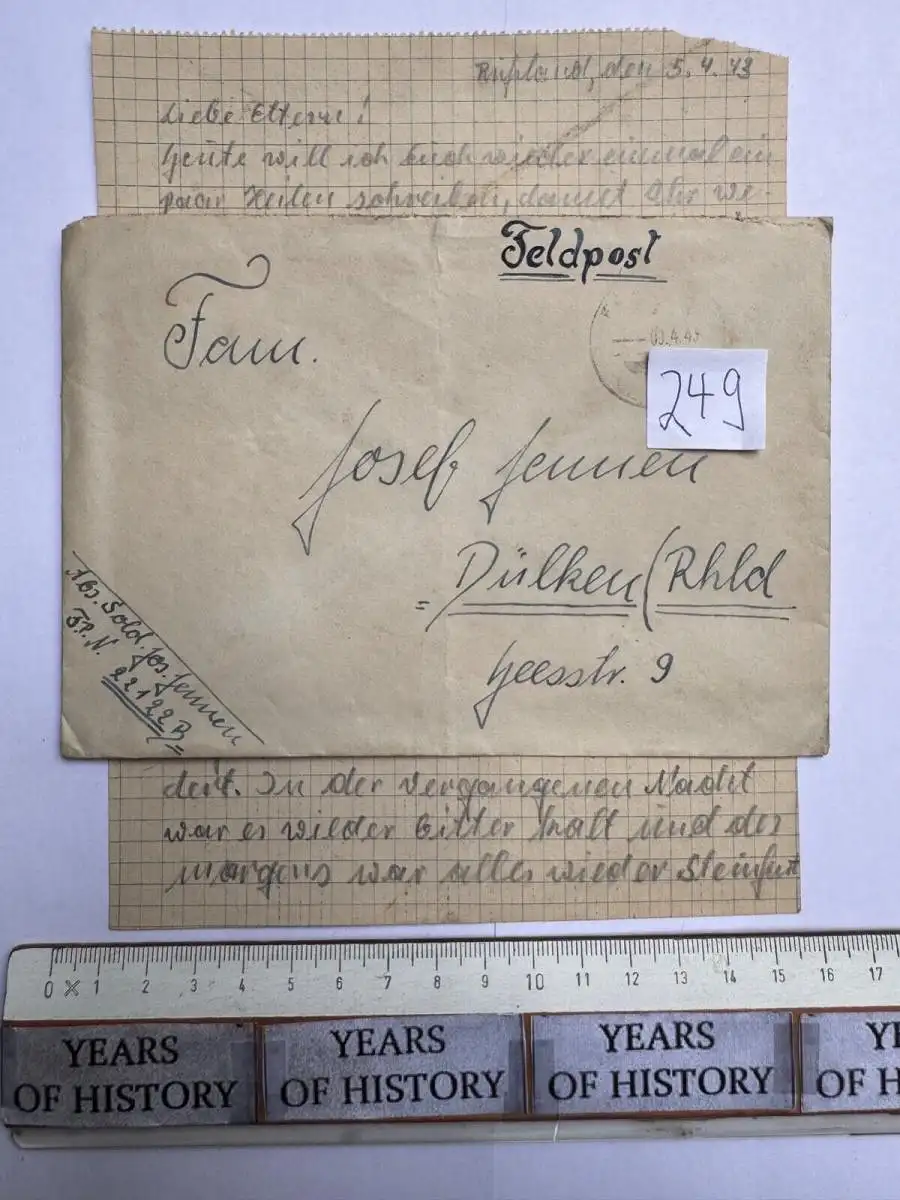 Rußland, den 5.4.43
Liebe Eltern!
Heute will ich Euch wieder einmal ein
paar Zeilen schreiben, damit Ihr we-
Feldpost
Fam.
5.4.43
249
Josef Jennen
Dülken/Rhld
Heesstr. 9
Abs. Sold. Jos. Jennen
F.P.N. 22122B
deit. In der vergangenen Nacht
war es wieder bitter kalt und des
morgens war alles wieder Steinhart
0 1 2 3 4 5 6 7 8 9 10 11 12 13 14 15 16 17
YEARS OF HISTORY
YEARS OF HISTORY
YEARS OF HISTORY
YE
OF H